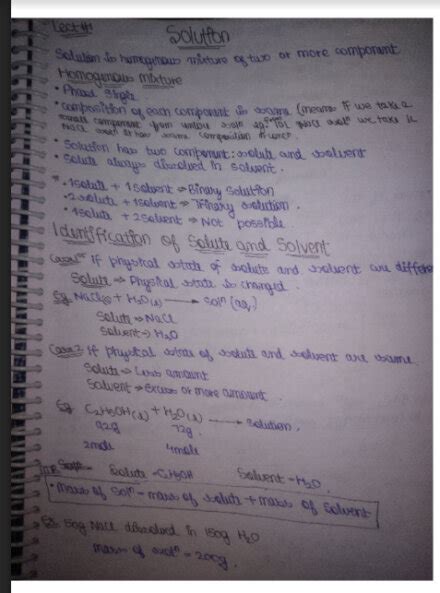 Lect #1
Solution
Solution is homogenous mixture of two or more component
Homogenous mixture
• Phase single
• Composition of each component is same (means if we take a
small component from whole soln eg- 10L NaCl soln we take 1L
NaCl soln has same composition
• Solution has two component: solute and solvent
• Solute always dissolved in solvent.
* • 1 solute + 1 solvent ⇒ Binary solution
• 2 solute + 1 solvent ⇒ Trinary solution.
• 1 solute + 2 solvent ⇒ Not possible.
Identification of Solute and Solvent
Case 1 If physical state of solute and solvent are differe
Solute ⇒ Physical state is changed.
Eg. NaCl(s) + H2O(l) → Soln (aq)
Solute ⇒ NaCl
Solvent ⇒ H2O
Case 2 If physical state of solute and solvent are same
Solute ⇒ Less amount
Solvent ⇒ Excess or more amount.
Eg C2H5OH(l) + H2O(l) → Solution.
92g 72g
2mole 4mole
Solute - C2H5OH Solvent - H2O
• mass of Soln = mass of solute + mass of solvent
Eg. 50g NaCl dissolved in 150g H2O
mass of soln = 200g.